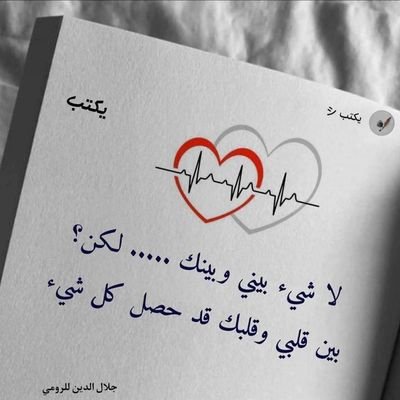 يكتب シ
يكتب
لا شيء بيني وبينك ..... لكن؟
بين قلبي وقلبك قد حصل كل شيء
جلال الدين للرومي